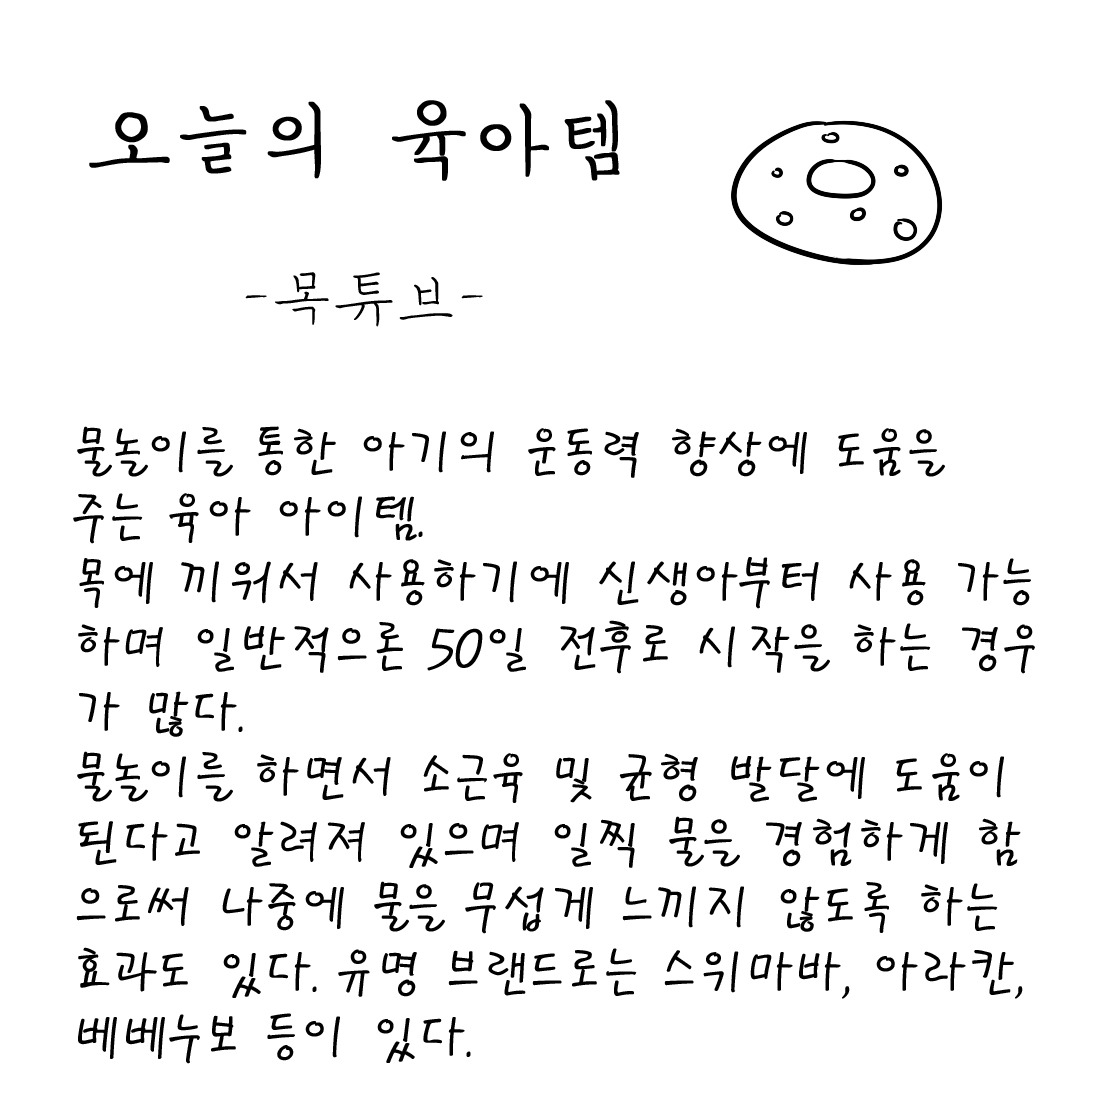 오늘의 육아템
-목튜브-
물놀이를 통한 아기의 운동력 향상에 도움을
주는 육아 아이템.
목에 끼워서 사용하기에 신생아부터 사용 가능
하며 일반적으론 50일 전후로 시작을 하는 경우
가 많다.
물놀이를 하면서 소근육 및 균형 발달에 도움이
된다고 알려져 있으며 일찍 물을 경험하게 함
으로써 나중에 물을 무섭게 느끼지 않도록 하는
효과도 있다. 유명 브랜드로는 스위마바, 아라칸,
베베누보 등이 있다.